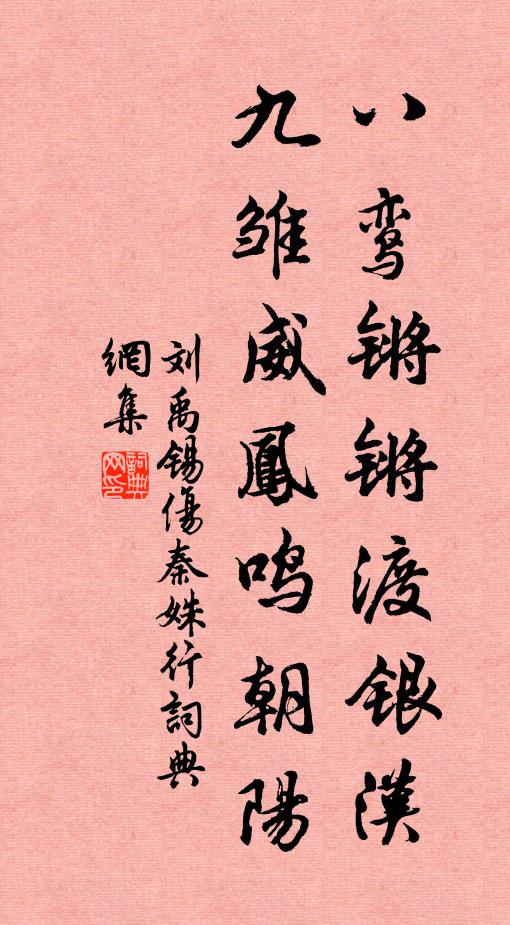 八鸾锵锵渡银汉
九雏威鳳鸣朝陽
刘禹锡傷秦姝行詞典
網集
詞典网印